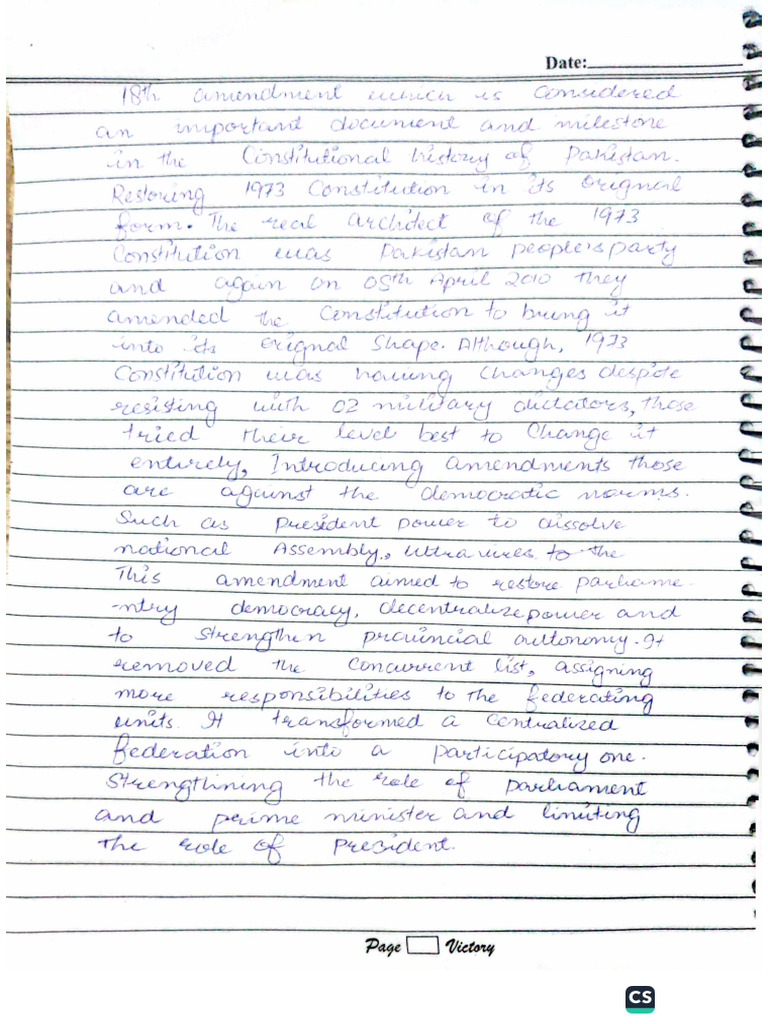 Date:
18th amendment which is considered
an important document and milestone
in the Constitutional history of Pakistan.
Restoring 1973 Constitution in its orignal
form. The real architect of the 1973
Constitution was Pakistan people's party
and again on 05th April 2010 they
amended the Constitution to bring it
into its orignal Shape. Although, 1973
Constitution was having changes despite
resisting with 02 military dictators, those
tried their level best to Change it
entirely, Introducing amendments those
are against the democratic norms.
Such as president power to dissolve
national Assembly, ultra vires to the
This amendment aimed to restore parliame-
-ntry democracy, decentralize power and
to strengthen provincial autonomy. It
removed the concurrent list, assigning
more responsibilities to the federating
units. It transformed a centralized
federation into a participatory one.
Strengthining the role of parliament
and prime minister and limiting
the role of President.
Page Victory
CS